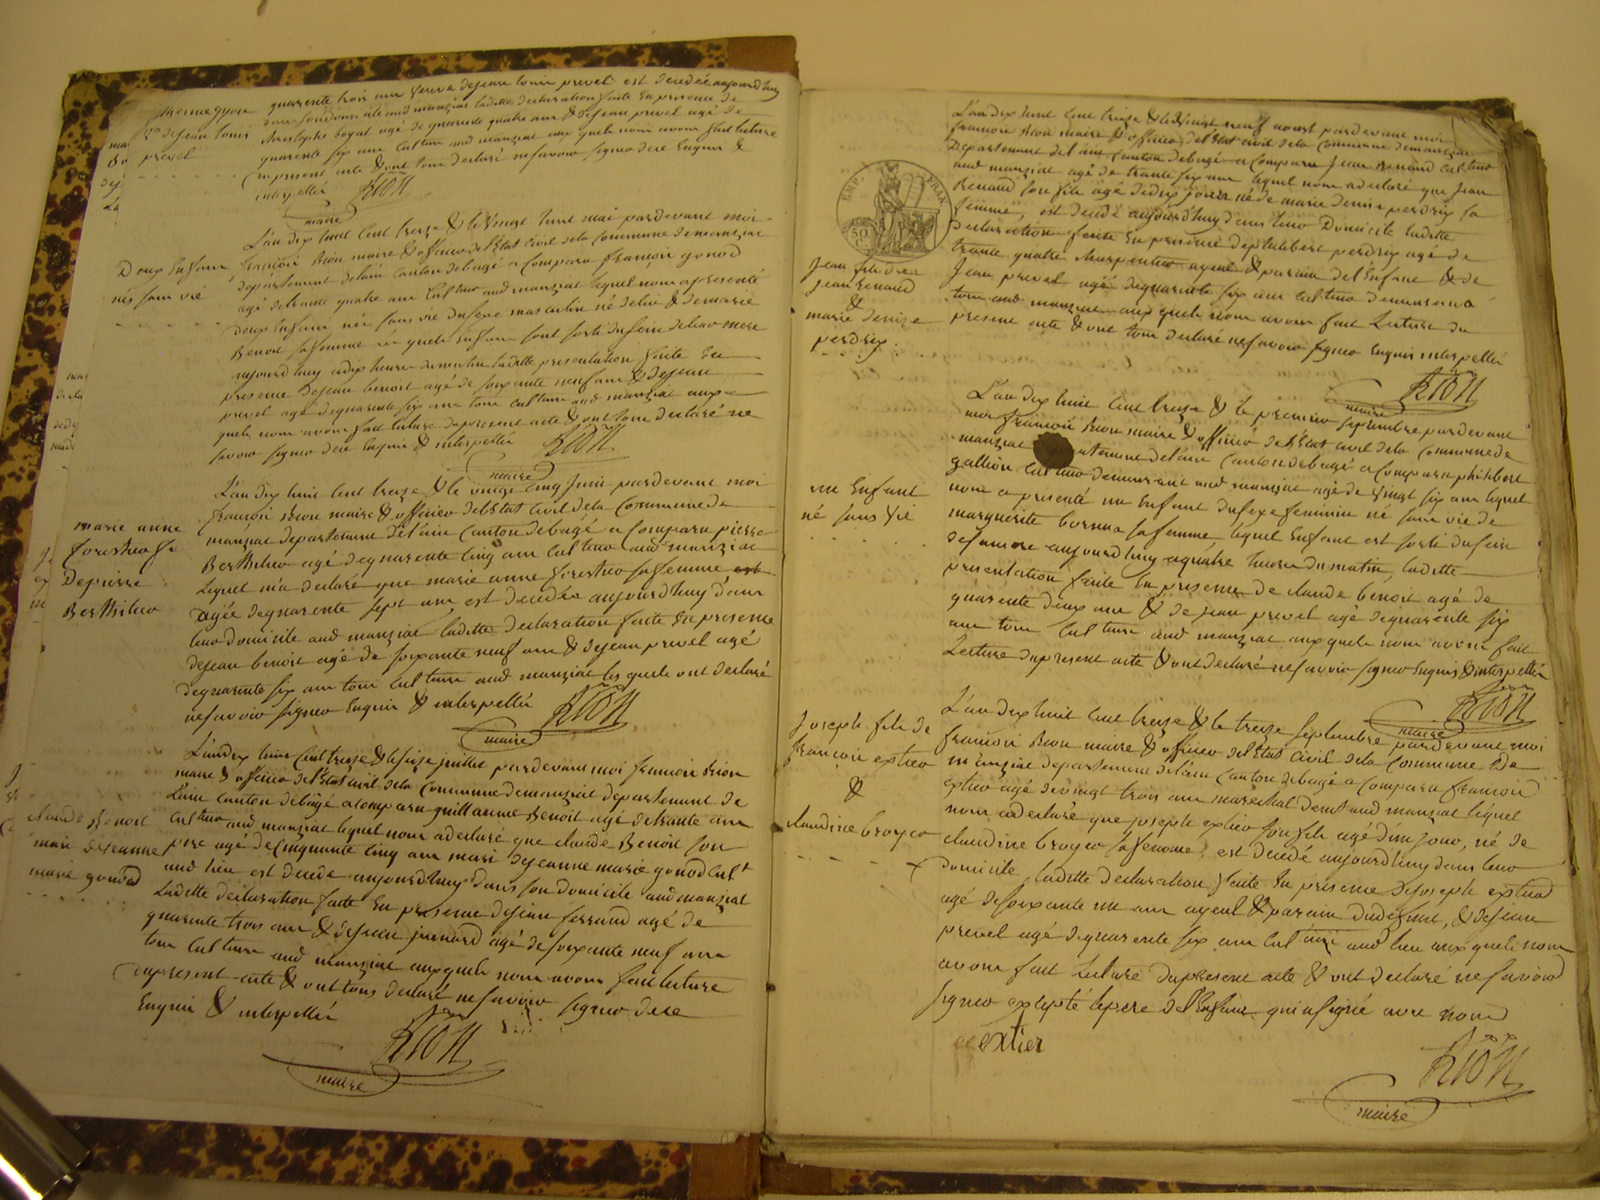 quarente trois ans veuve dejean louis prevel est decedée aujourdhuy
quarente six ans cultive aud manziat aux quels nous avons fait lecture
du present acte & ont tous declaré ne savoir signer dece Enquis &
interpellés
Rion
maire
veuve dejean louis
prevel
L'an dix huit cent treize & le vingt huit mai pardevant moi
françois Rion maire & officier del'Etat civil dela commune demanziat
departement delain canton debagé a comparu françois gonod
agé detrante quatre ans cultivr aud manziat lequel nous apresenté
deux Enfans nés sans vie dusexe masculin né delui & demarie
Benoit safemme les quels Enfans sont sorti dusein deleur mere
aujourdhuy adix heures dumatin ladite presentation faite En
presence dejean benoit agé de soixante neuf ans & dejean
prevel agé dequarente six ans tous cultivrs aud manziat aux
quels nous avons fait lecture dupresent acte & ont tous declaré ne
savoir signer dece Enquis & interpellés
Rion
maire
Deux Enfans
nés sans vie
L'an dix huit cent treize & le vingt cinq juin pardevant moi
françois Rion maire & officier del'Etat civil dela commune de
manziat departement delain canton debagé a comparu pierre
Berthilier agé dequarente cinq ans cultivr aud manziat
lequel m'a declaré que marie anne forestier safemme
agée dequarente sept ans est decedée aujourdhuy dans
leur domicile aud manziat ladite declaration faite En presence
dejean benoit agé de soixante neuf ans & dejean prevel agé
dequarente six ans tous cultivrs aud manziat les quels ont declaré
nesavoir signer Enquis & interpellés
Rion
maire
marie anne
forestier fe
Depierre
Berthilier
L'an dix huit cent treize & le seize juillet pardevant moi françois Rion
maire & officier del'Etat civil dela commune demanziat departement de
L'ain canton debagé acomparu guillaume Benoit agé detrante ans
cultivr aud manziat lequel nous adeclaré que claude Benoit son
pere agé decinquante cinq ans mari dejeanne marie gonod cult
aud lieu est decede aujourdhuy dans son domicile aud manziat
Ladite declaration faite En presence dejean ferrand agé de
quarente trois ans & dejean juenard agé desoixante neuf ans
tous cultivrs aud manziat auxquels nous avons fait lecture
dupresent acte & ont tous declaré nesavoir signer dece
Enquis & interpellés
Rion
maire
claude Benoit
mari dejeanne
marie gonod
L'an dix huit cent treize & le vingt neuf aoust pardevant moi
francois Rion maire & officier del'Etat civil dela commune demanziat
departement del'ain canton debagé a comparu Jean Renaud cultivr
aud manziat agé de trante six ans lequel nous adeclaré que Jean
Renaud son fils agé dedix jours né de marie denise perdrix sa
femme, est decedé aujourdhuy dans leur Domicile ladite
declaration faite En presence dephilibert perdrix agé de
trante quatre charpentier ayeul & parain del'Enfant & de
Jean prevel agé dequarente six ans cultivr demeurand
tous aud manziat aux quels nous avons fait Lecture du
present acte & ont tous declaré nesavoir signer Enquis interpellés
Rion
maire
EMP. FRAN.
50
C.
Jean fils de
Jean Renaud
&
marie denise
perdrix
L'an dix huit cent treize & le premier septembre pardevant
moi françois Rion maire & officier del'Etat civil dela commune de
manziat departement delain canton debagé a comparu philibert
gallion cultivr demeurant aud manziat agé de vingt six ans lequel
nous a presenté un Enfant dusexe feminin né sans vie de
marguerite bornua safemme, lequel Enfant est sorti dusein
desamere aujourdhuy aquatre heures dumatin, ladite
presentation faite En presence de claude benoit agé de
quarente deux ans & de jean prevel agé dequarente six
ans tous cultivrs aud manziat aux quels nous avons fait
Lecture dupresent acte & ont declaré nesavoir signer Enquis & interpellés
Rion
maire
un Enfant
né sans vie
L'an dix huit cent treize & le treize septembre pardevant moi
françois Rion maire & officier del'Etat civil dela commune de
manziat departement delain canton debagé a comparu françois
extier agé devingt trois ans maréchal demt aud manziat lequel
nous adeclaré que joseph extier son fils agé d'un jour, né de
claudine broyer safemme est decedé aujourdhuy dans leur
domicile, ladite declaration faite En presence dejoseph extier
agé desoixante un ans ayeul & parain dudefunt, & dejean
prevel agé dequarente six ans cultivr aud lieu aux quels nous
avons fait lecture dupresent acte & ont declaré nesavoir
signer excepté lepere del'Enfant qui asigné avec nous
extier
Rion
maire
Joseph fils de
françois extier
&
claudine broyer